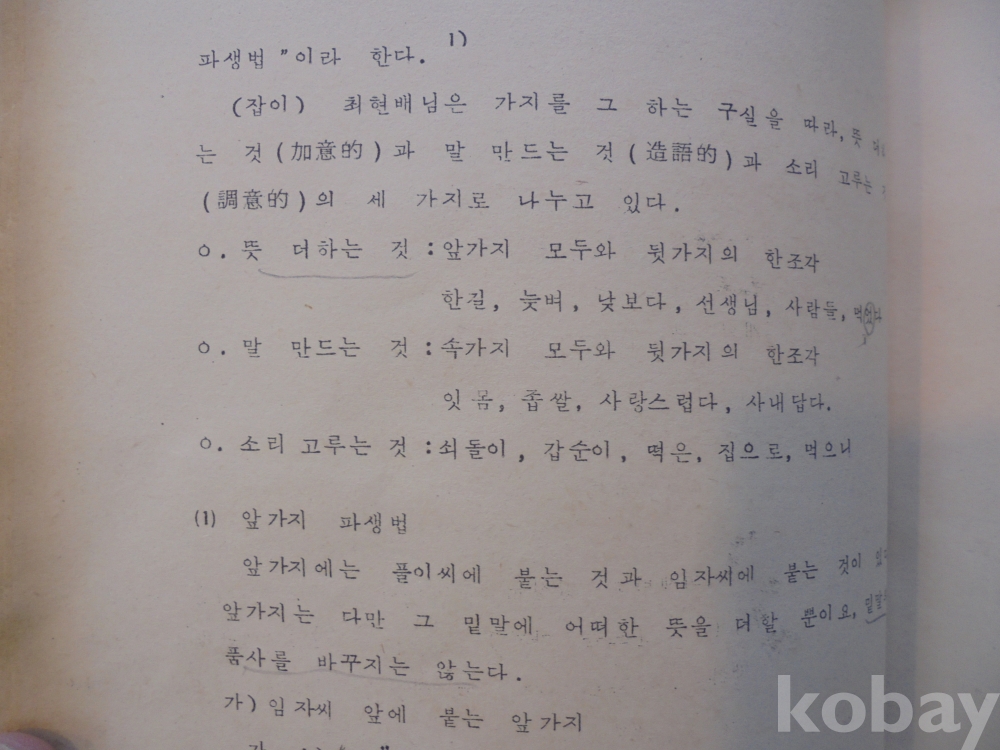 파생법 ”이라 한다. 1)
(잡이) 최현배님은 가지를 그 하는 구실을 따라, 뜻
는 것 (加意的)과 말 만드는 것 (造語的)과 소리 고루는
(調意的)의 세 가지로 나누고 있다.
ㅇ. 뜻 더하는 것 : 앞가지 모두와 뒷가지의 한조각
한길, 늦벼, 낮보다, 선생님, 사람들,
ㅇ. 말 만드는 것 : 속가지 모두와 뒷가지의 한조각
잇몸, 좁쌀, 사랑스럽다, 사내답다.
ㅇ. 소리 고루는 것 : 쇠돌이, 갑순이, 떡은, 집으로, 먹으니
(1) 앞가지 파생법
앞가지에는 플이씨에 붙는 것과 임자씨에 붙는 것이
앞가지는 다만 그 밑말에 어떠한 뜻을 더할 뿐이요,
품사를 바꾸지는 않는다.
가) 임자씨 앞에 붙는 앞가지
kobay